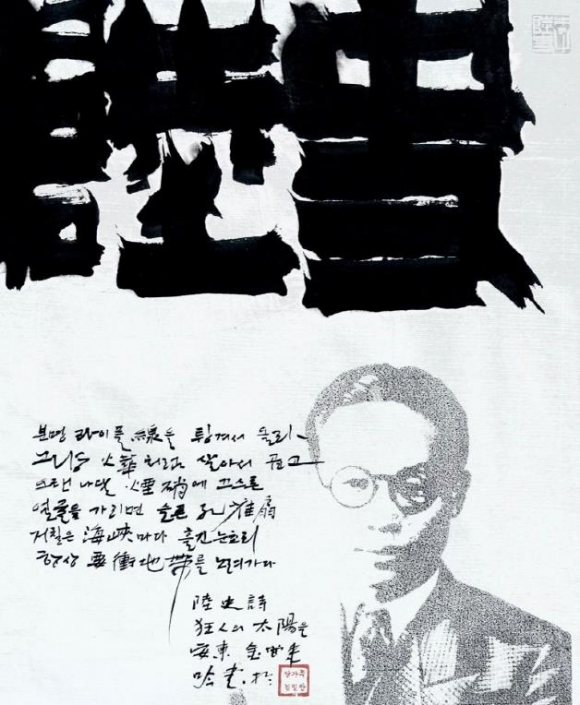 분명 라이플 線을 튕겨서 올라
그냥 火華처럼 살아서 곱고
오랜 나달 煙硝에 끄스른
얼굴을 가리면 슬픈 孔雀扇
거칠은 海峽마다 흘긴눈초리
항상 要衝地帶를 노려가다
陸史詩
狂人의 太陽을
安東 金